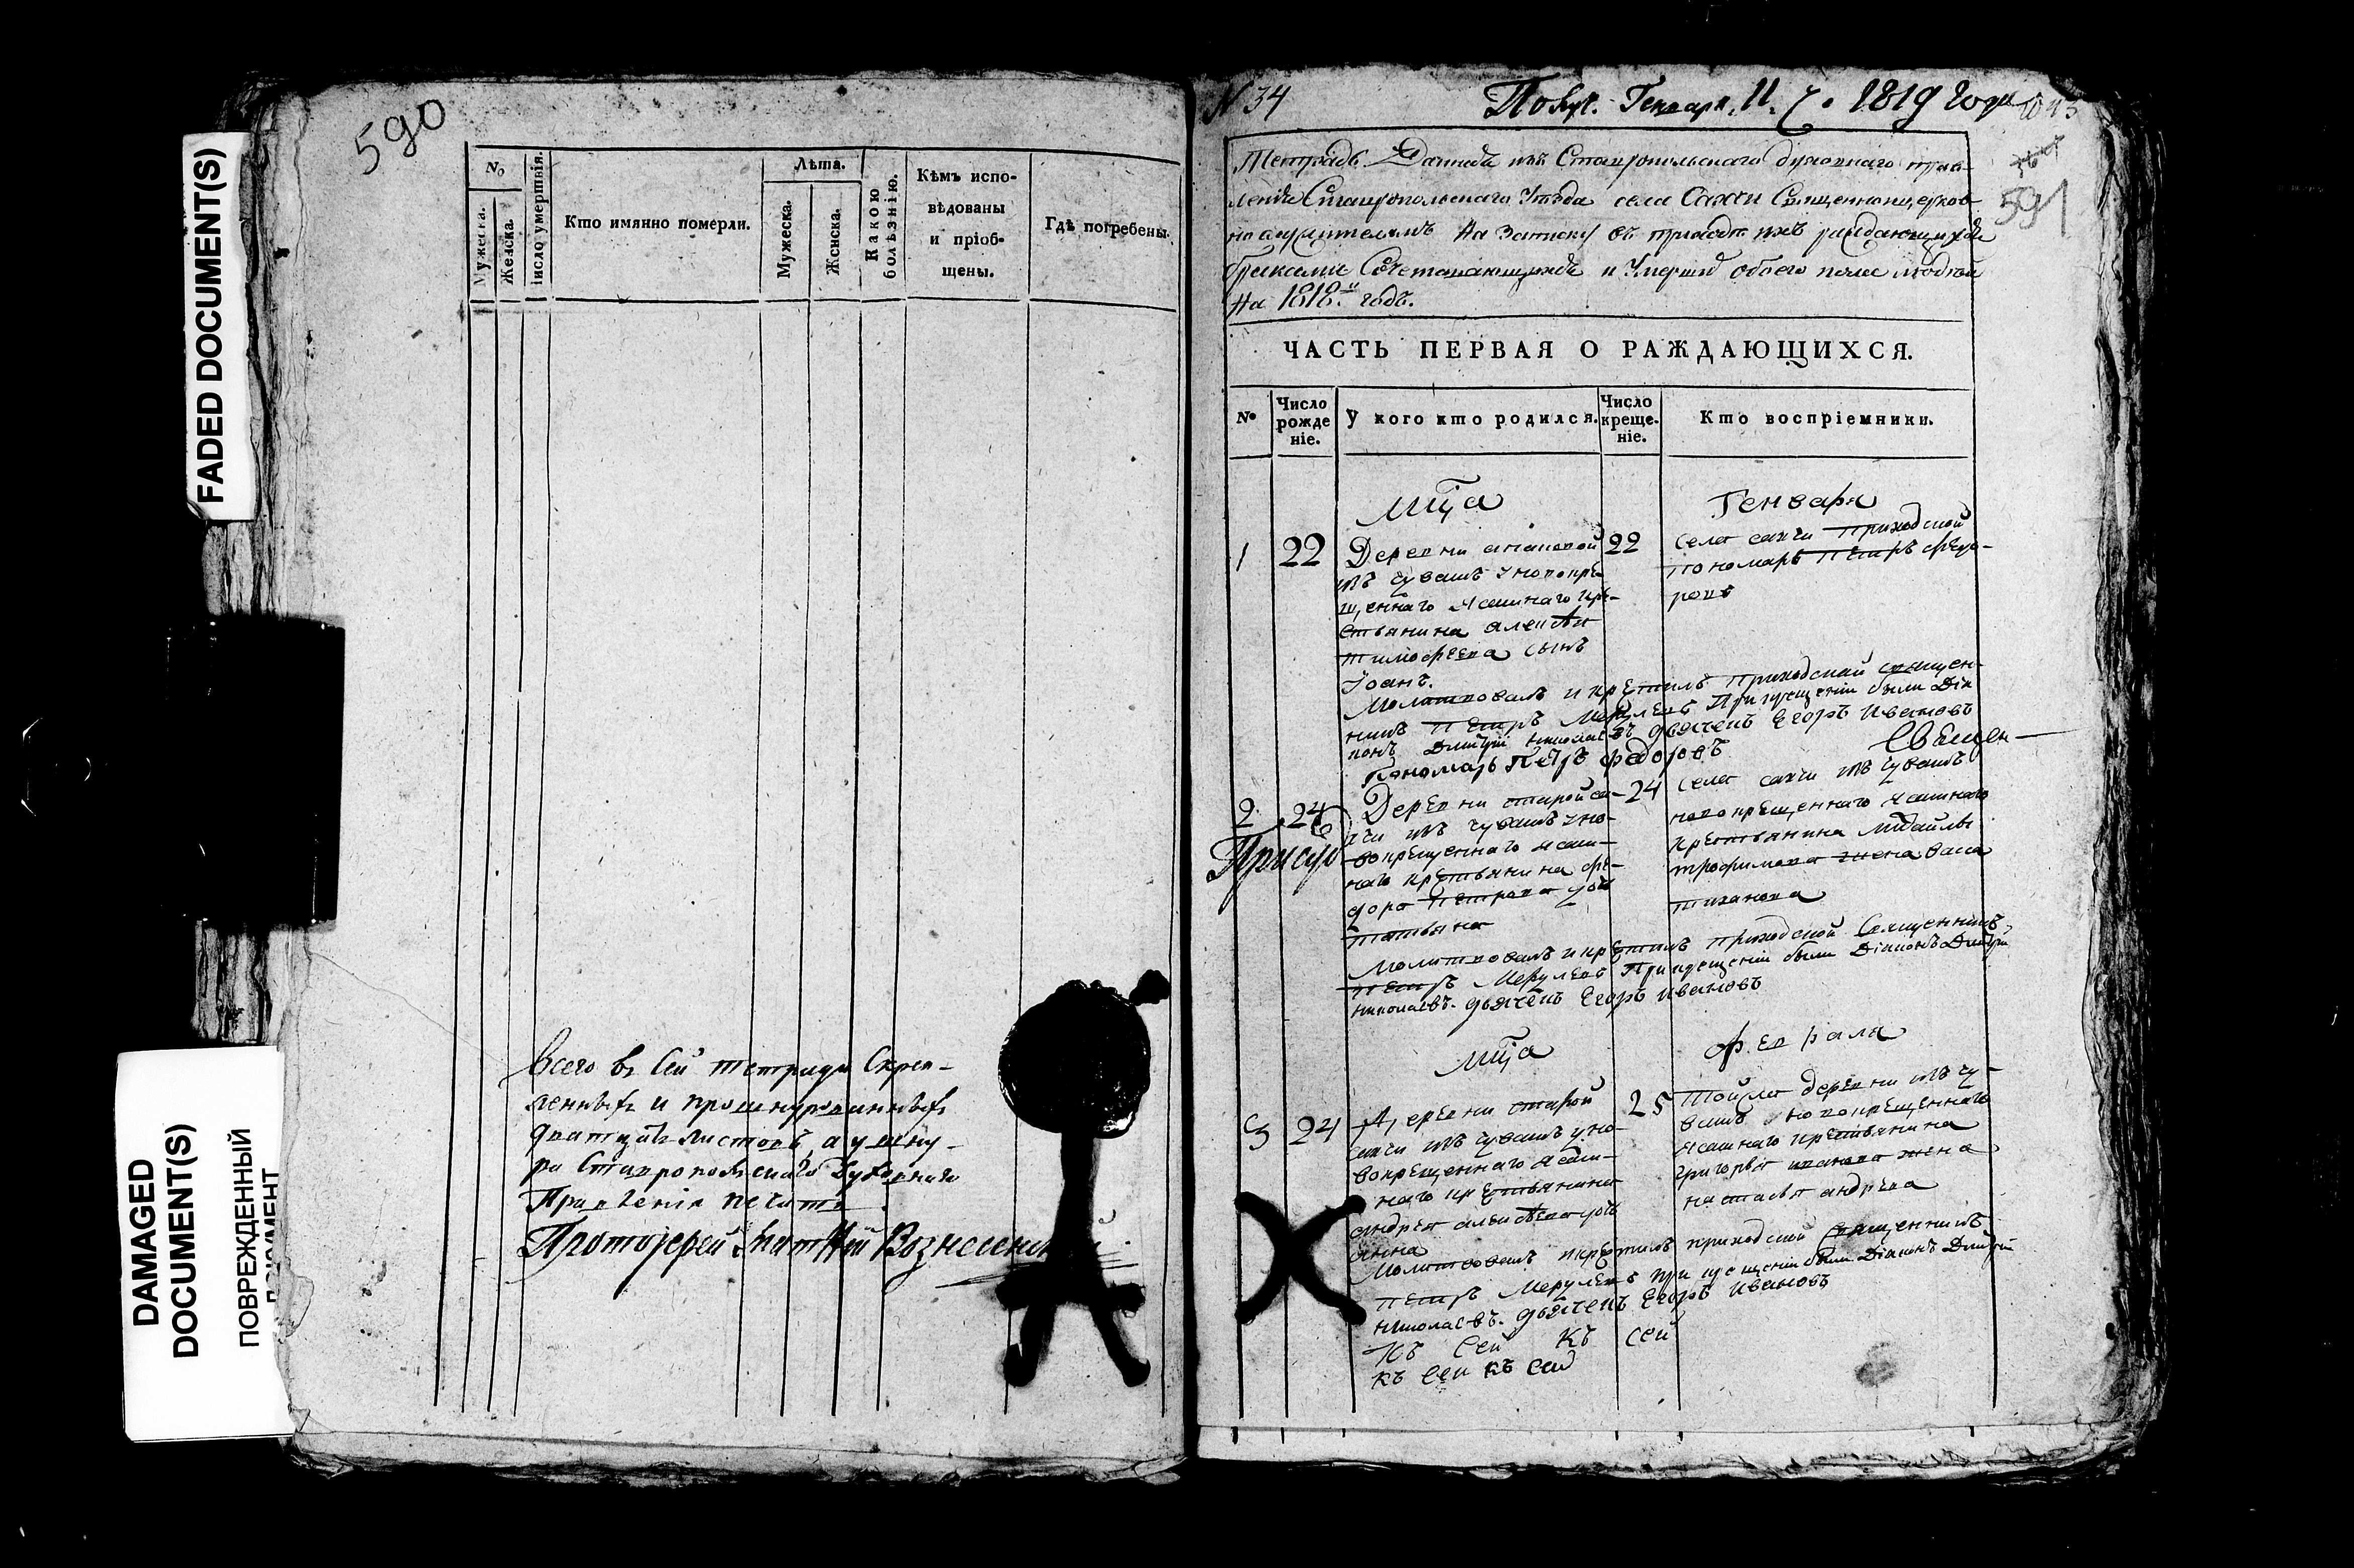 590
FADED DOCUMENT(S)
DAMAGED
DOCUMENT(S)
ПОВРЕЖДЕННЫЙ
ДОКУМЕНТ
№
Мужеска.
Женска.
число умертвія.
Кто имянно померли.
Лѣта.
Мужеска.
Женска.
Какою
болѣзнію.
Кѣмъ испо-
вѣдованы
и пріоб-
щены.
Гдѣ погребены.
Всего въ сей тетради скреп-
ленныхъ и прошнурованныхъ
двапцать листовъ, а у шну-
ра Ставропольскаго Духовнаго
Правленія печать
Протоіерей Возне
N 34
Генваря 11 1819 года
591
Тетрадь Данная изъ Ставропольскаго духовнаго прав-
ленія Ставропольскаго Уѣзда села Сахчи Священноцерков-
но служителямъ на записку въ приходѣ ихъ раждающихся
браками Сочетавающихся и Умершихъ обоего пола людей
На 1818й годъ.
ЧАСТЬ ПЕРВАЯ О РАЖДАЮЩИХСЯ.
№
Число
рожде
ніе.
У кого кто родился.
Число
креще-
ніе.
Кто воспріемники.
Мца Генваря
1 22
Деревни
изъ чувашъ у новокре-
щеннаго Ясашнаго кре-
стьянина алексѣя
тимофеева сынъ
Іоанъ.
22
села сахчи приходской
пономарь Петръ федо-
ровъ
Молитвовалъ и крестилъ приходской священ-
никъ Петръ При крещеніи были Діа
конъ Дмитрій николаевъ дьячекъ Егоръ Ивановъ
Пономарь Петръ федоровъ
Священ-
2 24
Деревни старой са-
хчи изъ чувашъ у но-
вокрещеннаго ясаш-
наго крестьянина фе-
дора петрова дочь
татьяна
24
села сахчи изъ чувашъ
новокрещеннаго ясашнаго
крестьянина михайлы
трофимова жена
Молитвовалъ и крестилъ приходской Священникъ
Петръ При крещеніи были Діаконъ Дмитрій
николаевъ. дьячекъ Егоръ Ивановъ
Мца февраля
3 24
Деревни старой
сахчи изъ чувашъ у но-
вокрещеннаго ясаш-
наго крестьянина
андрея алексѣева дочь
анна
25
деревни изъ чу-
вашъ новокрещеннаго
ясашнаго крестьянина
григорья иванова жена
настасья андреева
Молитвовалъ и крестилъ приходской священникъ
Петръ при крещеніи были Діаконъ Дмитрій
николаевъ. дьячекъ Егоръ Ивановъ
Къ Сей Къ сей
къ сей къ сей